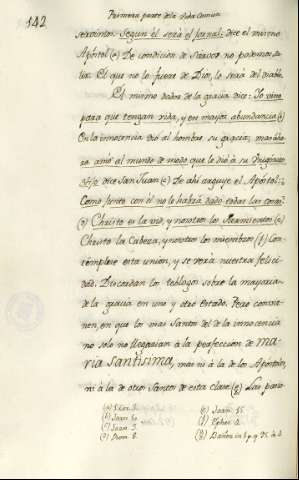 142
Primera parte de la Vida Comun
servirán. Segun el será el jornal: dice el mismo
Apóstol (a) De condicion de Siervos no podemos sa-
lir. El que no lo fuere de Dios, lo será del diablo.
El mismo dador de la gracia dice: Yo vine
para que tengan vida, y en mayor abundancia (b)
En la inocencia dió al hombre su gracia; mas aho-
ra amó al mundo de modo que le dió a su Unigenito
Hijo dice San Juan (c) De ahi arguye el Apóstol:
Como junto con él no le habrá dado todas las cosas?
(d) Christo es la vid, y nosotros los Sarmientos (e)
Christo la Cabeza, y nosotros los miembros (f) Con-
témplese esta union, y se verá nuestra felici-
dad. Discordan los teólogos sobre la mayoria
de la gracia en uno y otro Estado. Pero convie-
nen, en que los mas Santos del de la inocencia
no solo no llegarian á la perfeccion de Ma-
ria Santisima, mas ni à la de los Apóstoles,
ni à la de otros Santos de esta clase (g) Las
(b) Joan. 10.
(c) Joan. 3.
(d) Rom. 8.
(e) Joan. 15.
(f) Ephes.